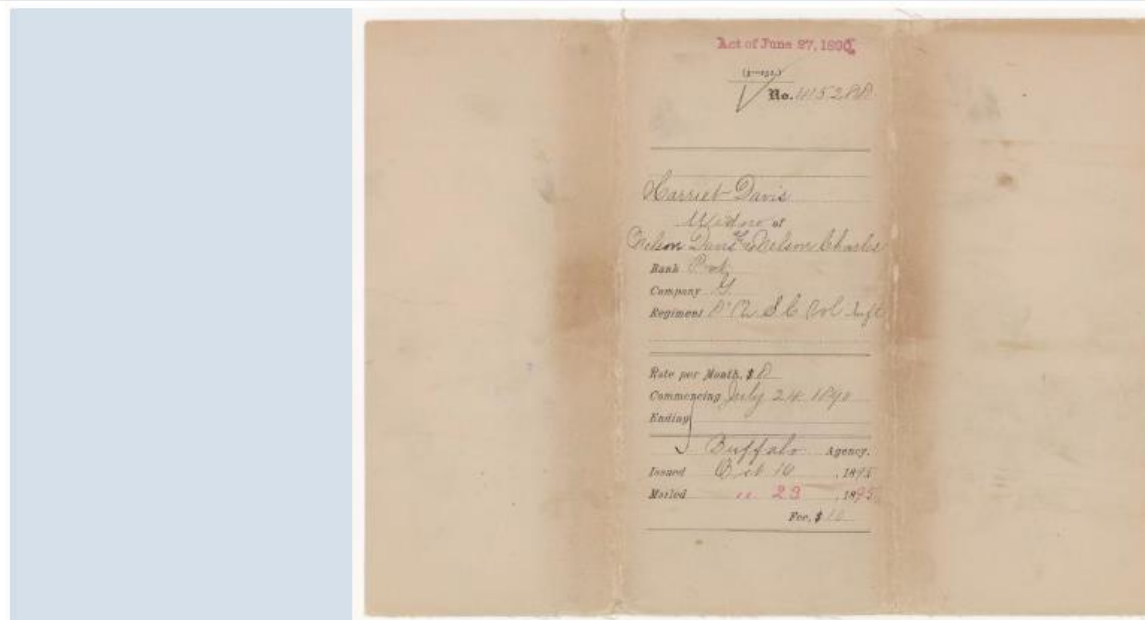 Act of June 27, 1890.
(3—191.)
No. 415288
Harriet Davis
Widow of
Nelson Davis Nelson Charles
Rank Pvt
Company G
Regiment 8" U.S.C Vol Inft
Rate per Month, $ 8
Commencing July 24 1890
Ending
Buffalo Agency.
Issued Oct 16, 1895
Mailed " 23, 1895
Fee, $ 10